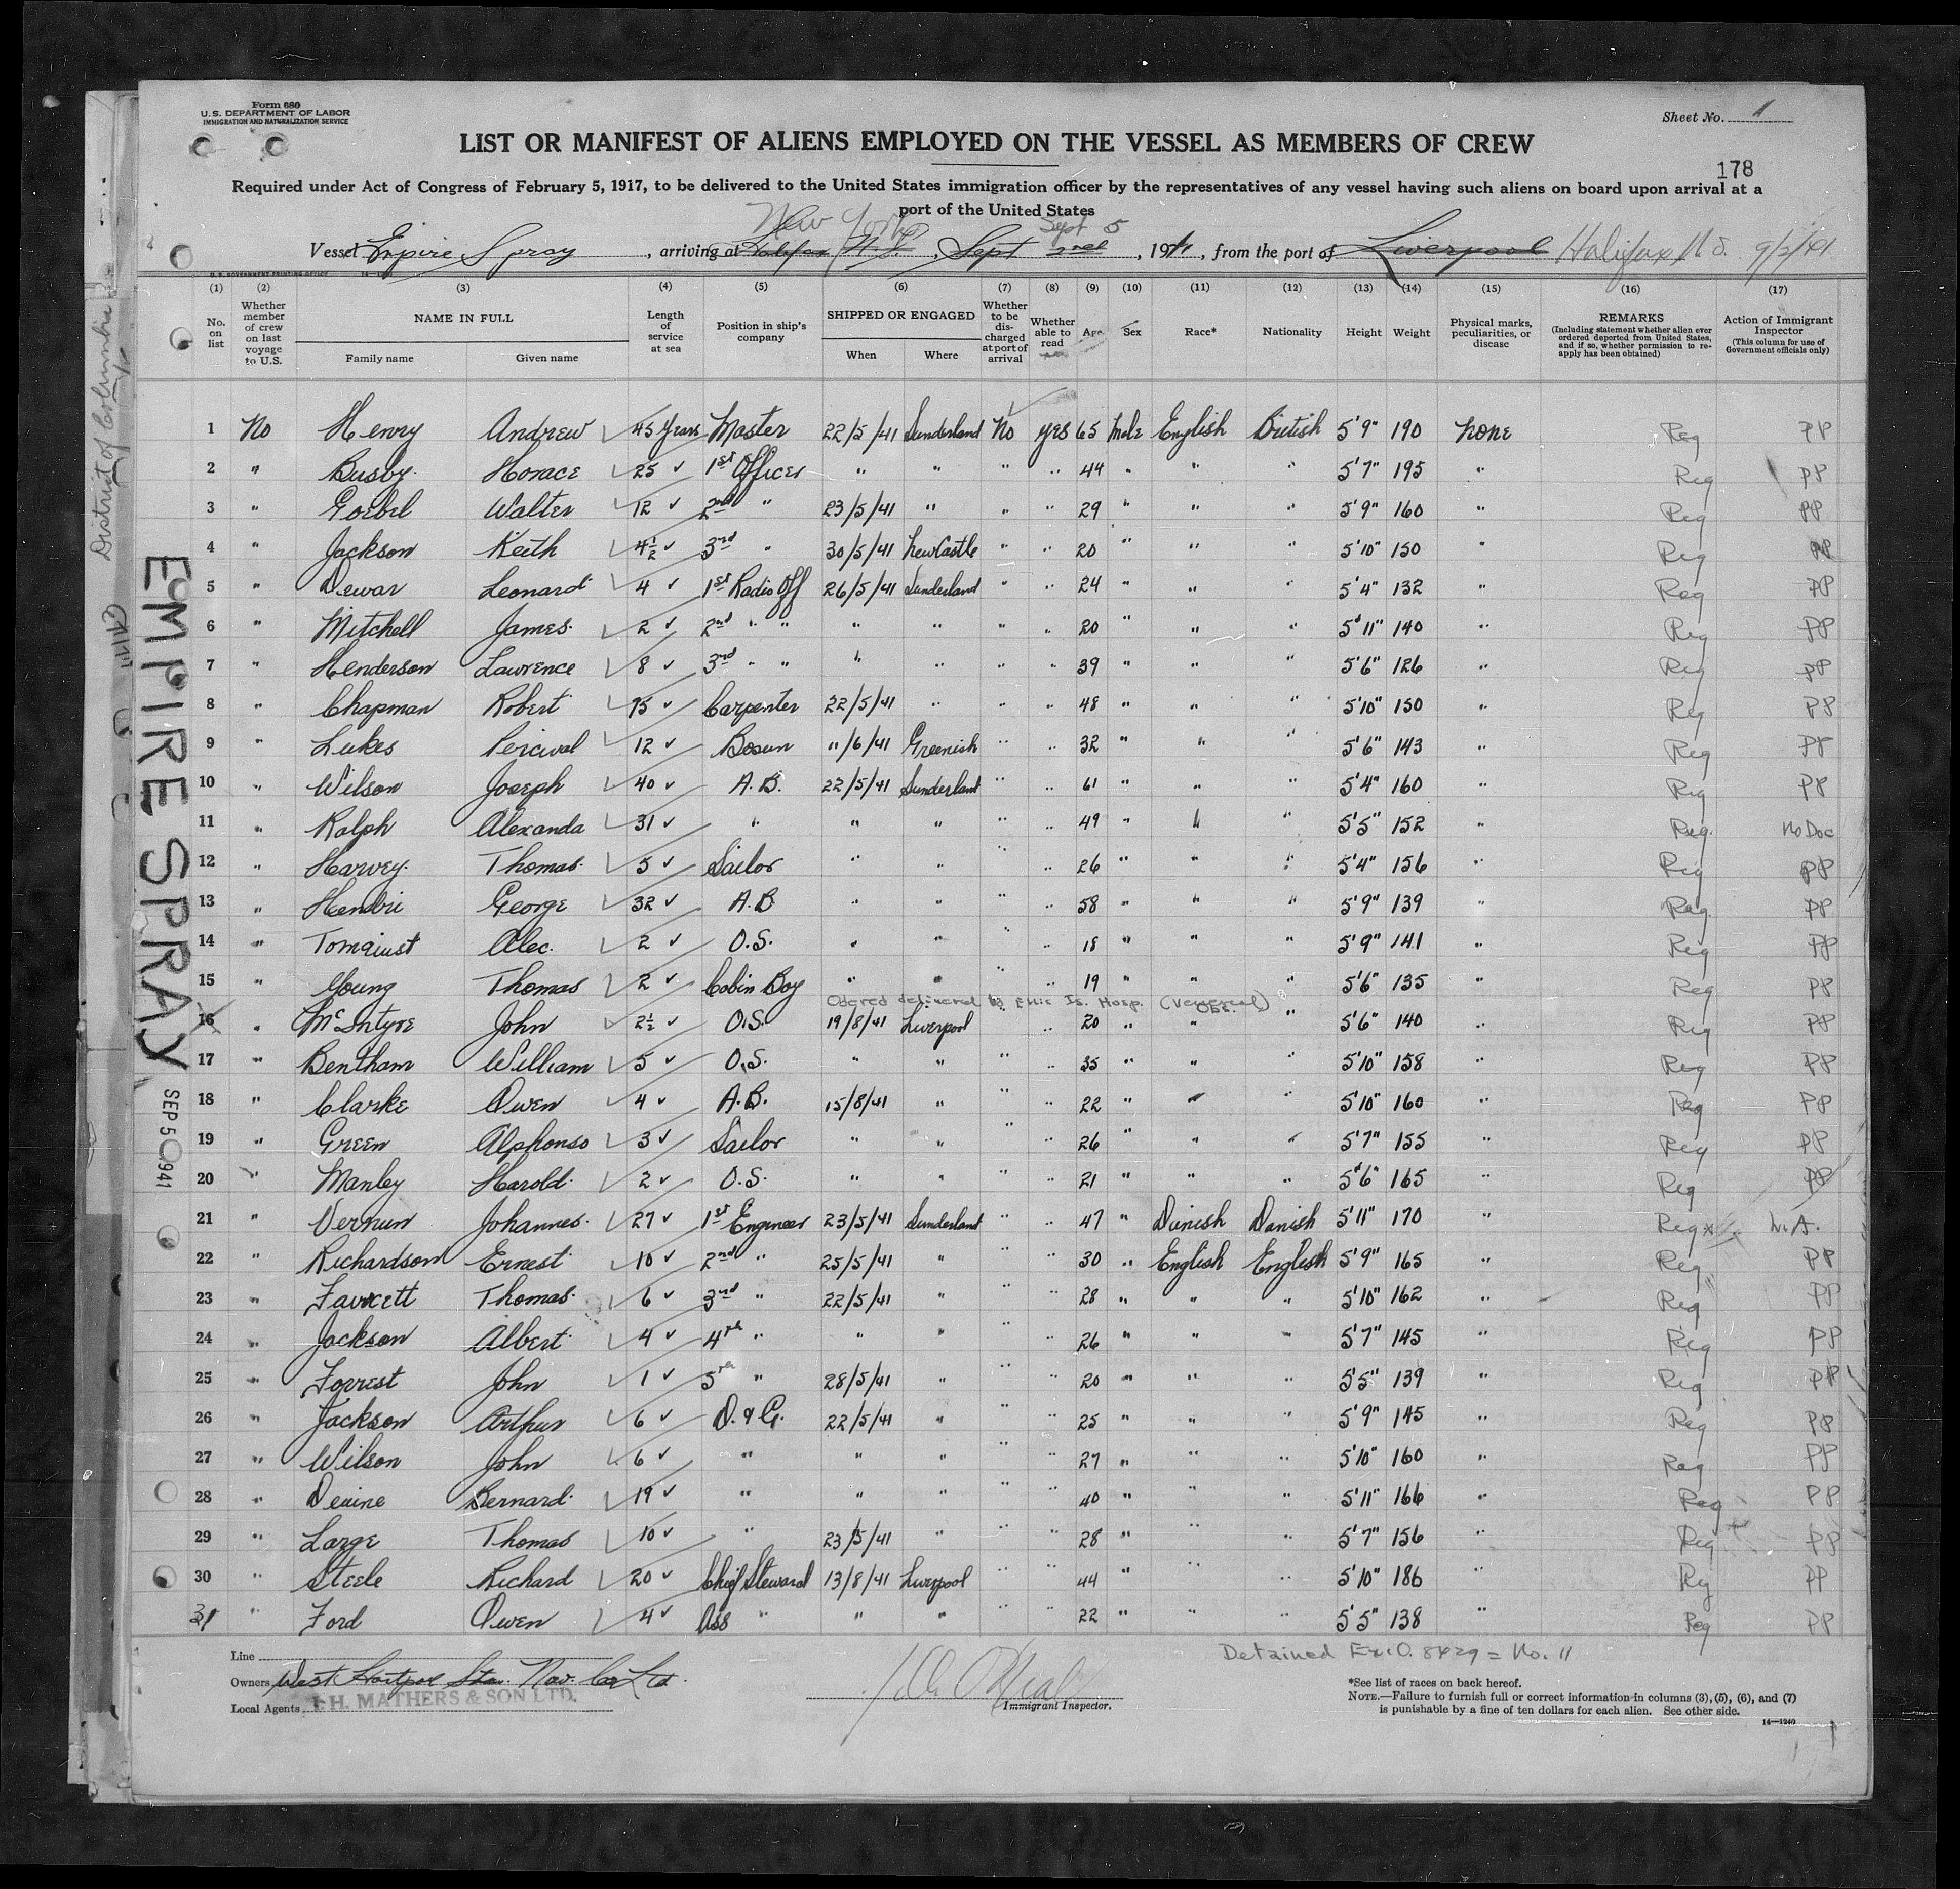 Form 680
U.S. DEPARTMENT OF LABOR
IMMIGRATION AND NATURALIZATION SERVICE
Sheet No. 1
LIST OR MANIFEST OF ALIENS EMPLOYED ON THE VESSEL AS MEMBERS OF CREW
178
Required under Act of Congress of February 5, 1917, to be delivered to the United States immigration officer by the representatives of any vessel having such aliens on board upon arrival at a
port of the United States
New York Sept 5
Vessel Empire Spray, arriving at Halifax N.S., Sept 2nd, 1941, from the port of Liverpool Halifax N.S. 9/2/41
U. S. GOVERNMENT PRINTING OFFICE
(1) (2) (3) (4) (5) (6) (7) (8) (9) (10) (11) (12) (13) (14) (15) (16) (17)
No. on list
Whether member of crew on last voyage to U.S.
NAME IN FULL
Family name
Given name
Length of service at sea
Position in ship's company
SHIPPED OR ENGAGED
When
Where
Whether to be discharged at port of arrival
Whether able to read
Age
Sex
Race*
Nationality
Height
Weight
Physical marks, peculiarities, or disease
REMARKS
(Including statement whether alien ever ordered deported from United States, and if so, whether permission to reapply has been obtained)
Action of Immigrant Inspector
(This column for use of Government officials only)
1 No Henry Andrew 45 Years Master 22/5/41 Sunderland No yes 65 Male English British 5'9" 190 None Reg PP
2 " Busby Horace 25 1st Officer " " " " 44 " " " 5'7" 195 " Reg PP
3 " Goebel Walter 12 2nd " 23/5/41 " " " 29 " " " 5'9" 160 " Reg PP
4 " Jackson Keith 4½ 3rd " 30/5/41 NewCastle " " 20 " " " 5'10" 150 " Reg PP
5 " Dewar Leonard 4 1st Radio Off 26/5/41 Sunderland " " 24 " " " 5'4" 132 " Reg PP
6 " Mitchell James 2 2nd " " " " " " 20 " " " 5'11" 140 " Reg PP
7 " Henderson Lawrence 8 3rd " " " " " " 39 " " " 5'6" 126 " Reg PP
8 " Chapman Robert 15 Carpenter 22/5/41 " " " 48 " " " 5'10" 150 " Reg PP
9 " Lukes Percival 12 Bosun 11/6/41 Greenish " " 32 " " " 5'6" 143 " Reg PP
10 " Wilson Joseph 40 A.B. 22/5/41 Sunderland " " 61 " " " 5'4" 160 " Reg PP
11 " Ralph Alexanda 31 " " " " " 49 " " " 5'5" 152 " Reg. No Doc
12 " Harvey Thomas 5 Sailor " " " " 26 " " " 5'4" 156 " Reg PP
13 " Hendri George 32 A.B " " " " 58 " " " 5'9" 139 " Reg. PP
14 " Tomquist Alec. 2 O.S. " " " " 18 " " " 5'9" 141 " Reg PP
15 " Young Thomas 2 Cabin Boy " " " " 19 " " " 5'6" 135 " Reg PP
Odered delivered to Ellis Is. Hosp. (Venereal) Obs.
16 " McIntyre John 2½ O.S. 19/8/41 Liverpool " " 20 " " " 5'6" 140 " Reg PP
17 " Bentham William 5 O.S. " " " " 35 " " " 5'10" 158 " Reg PP
18 " Clarke Owen 4 A.B. 15/8/41 " " " 22 " " " 5'10" 160 " Reg PP
19 " Green Alphonso 3 Sailor " " " " 26 " " " 5'7" 155 " Reg PP
20 " Manley Harold 2 O.S. " " " " 21 " " " 5'6" 165 " Reg PP
21 " Vernun Johannes 27 1st Engineer 23/5/41 Sunderland " " 47 " Danish Danish 5'11" 170 " Reg x
22 " Richardson Ernest 10 2nd " 25/5/41 " " " 30 " English English 5'9" 165 " Reg PP
23 " Fawcett Thomas 6 3rd " 22/5/41 " " " 28 " " " 5'10" 162 " Reg PP
24 " Jackson Albert 4 4th " " " " " 26 " " " 5'7" 145 " Reg PP
25 " Forrest John 1 5th " 28/5/41 " " " 20 " " " 5'5" 139 " Reg PP
26 " Jackson Arthur 6 D. & G. 22/5/41 " " " 25 " " " 5'9" 145 " Reg PP
27 " Wilson John 6 " " " " " 27 " " " 5'10" 160 " Reg PP
28 " Devine Bernard 19 " " " " " 40 " " " 5'11" 166 " Reg PP
29 " Large Thomas 10 " 23/5/41 " " " 28 " " " 5'7" 156 " Reg PP
30 " Steele Richard 20 Chief Steward 13/8/41 Liverpool " " 44 " " " 5'10" 186 " Reg PP
31 " Ford Owen 4 Ass " " " " " 22 " " " 5'5" 138 " Reg PP
Detained Ex.O. 8429 = No. 11
Line
Owners West Hartpool Stm. Nav. Co Ltd.
Local Agents I. H. MATHERS & SON LTD.
Immigrant Inspector.
*See list of races on back hereof.
NOTE.—Failure to furnish full or correct information in columns (3), (5), (6), and (7)
is punishable by a fine of ten dollars for each alien. See other side.
14—1240
EMPIRE SPRAY
SEP 5 1941
District of Columbia